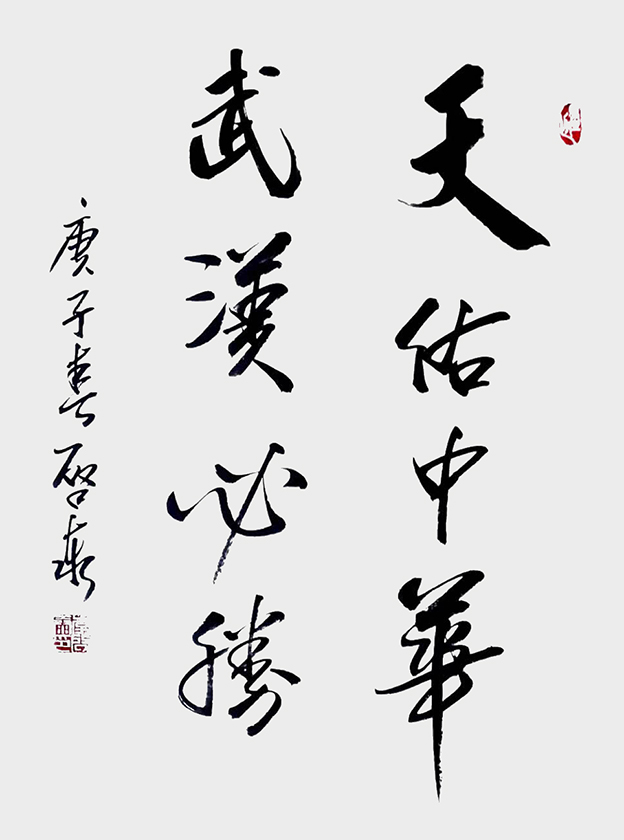 天佑中華
武漢必勝
庚子春啓泰